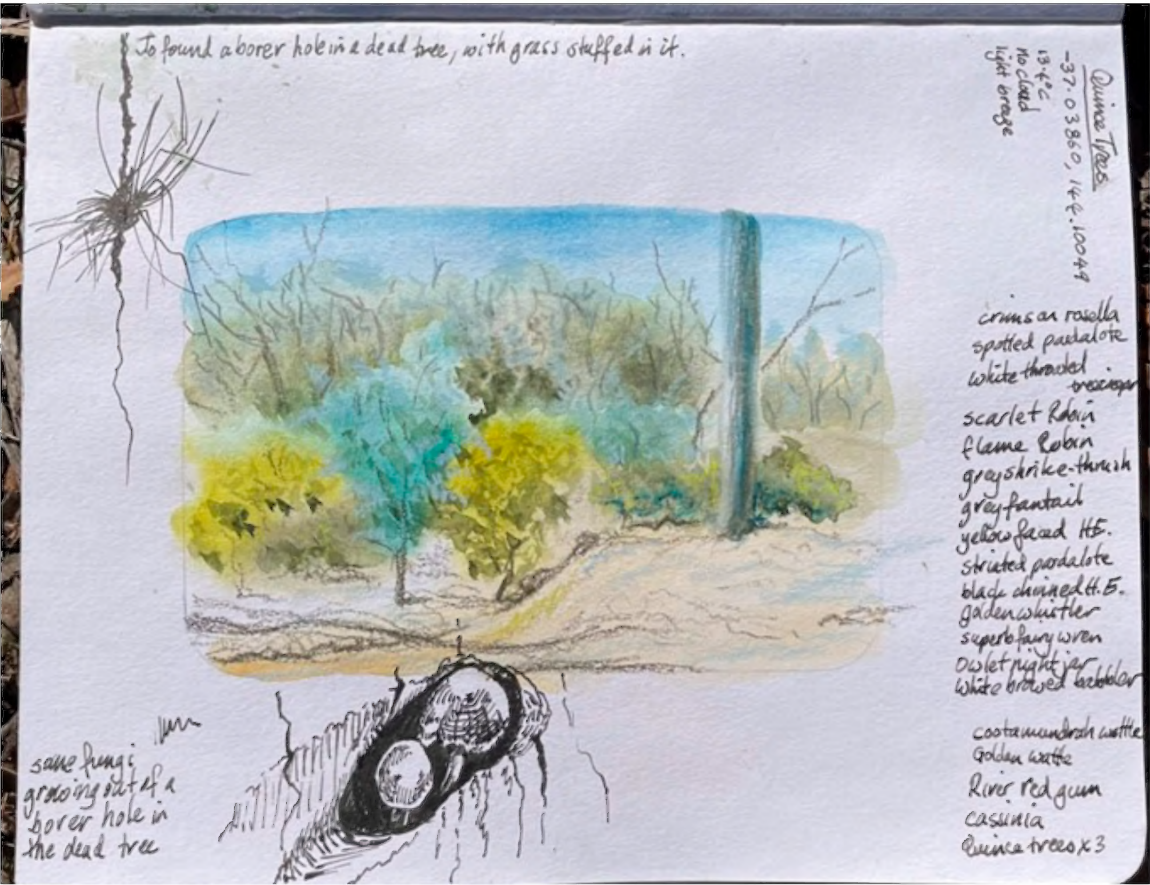 Jo found a borer hole in a dead tree, with grass stuffed in it.
Quince Trees
-37.03860, 144.10049
13.4°C
No cloud
light breeze
crimson rosella
spotted pardalote
white throated
treecreeper
scarlet Robin
flame Robin
grey shrike-thrush
grey fantail
yellow faced H.E.
striated pardalote
black chinned H.E.
golden whistler
superb fairy wren
Owlet nightjar
White browed babbler
cootamundrah wattle
Golden wattle
River red gum
cassinia
Quince trees x 3
some fungi
growing out of a
borer hole in
the dead tree